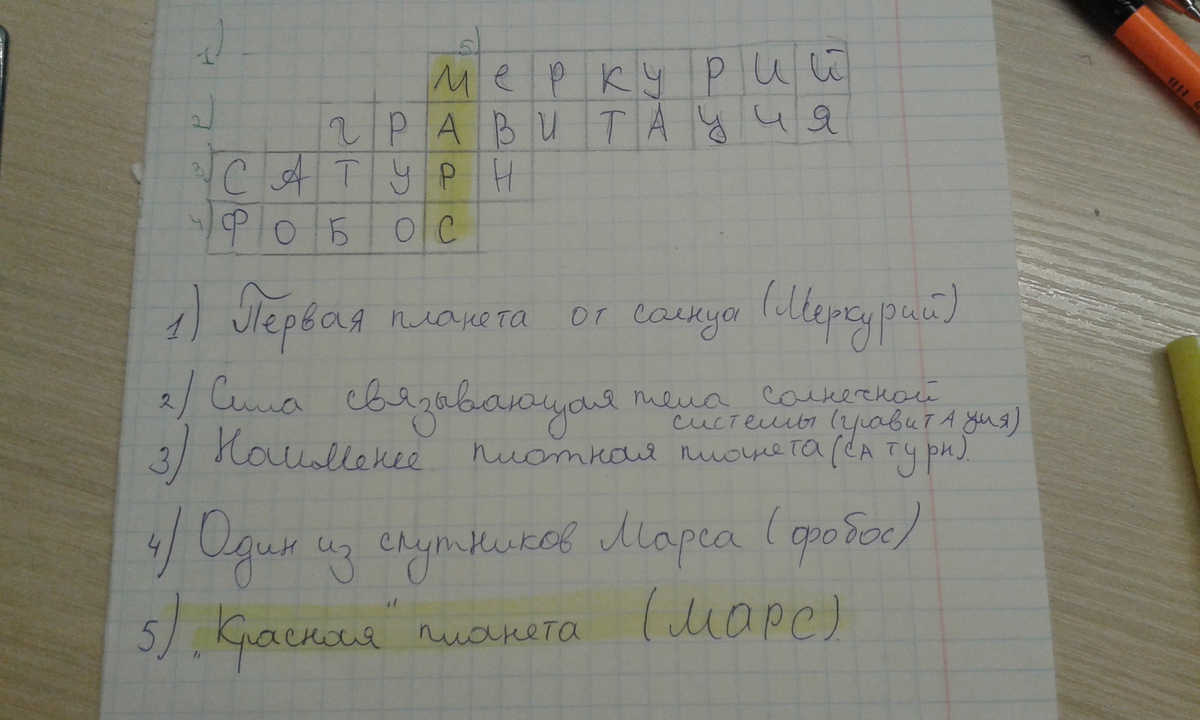 1) 5)
МЕРКУРИЙ
2) ГРАВИТАЦИЯ
3) САТУРН
4) ФОБОС
1) Первая планета от солнца (Меркурий)
2) Сила связывающая тела солнечной
системы (гравитация)
3) Наименее плотная планета (сатурн).
4) Один из спутников Марса (фобос)
5) „Красная" планета (МАРС).